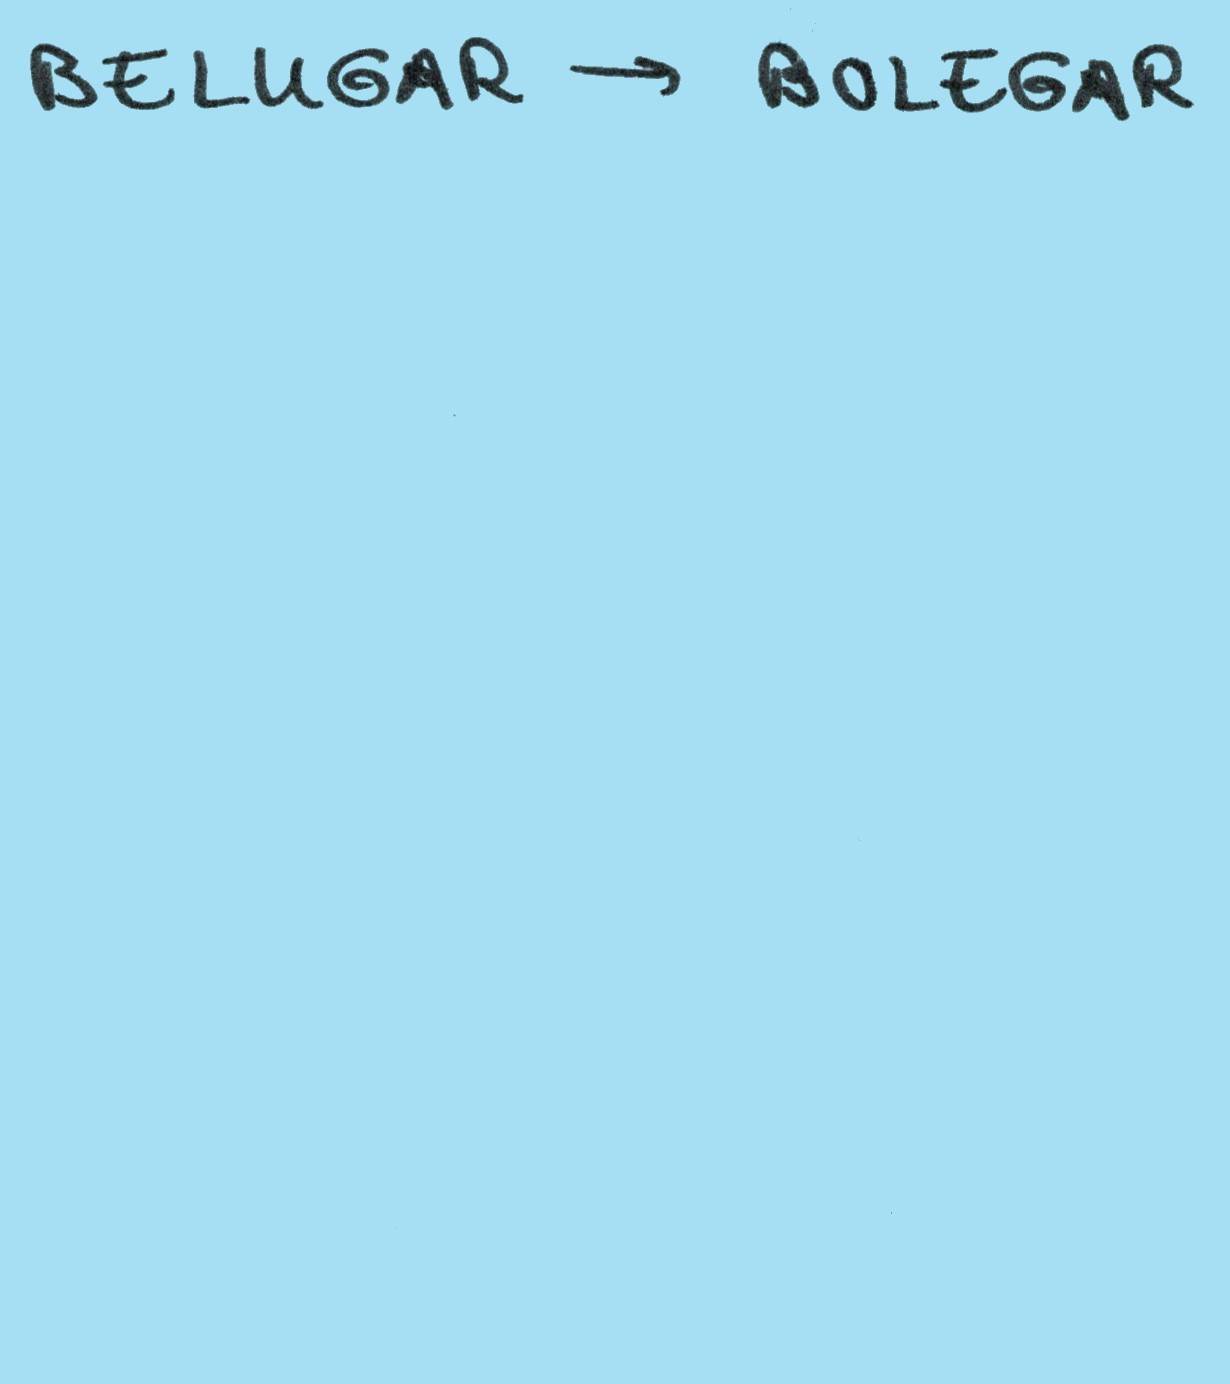 BELUGAR → BOLEGAR